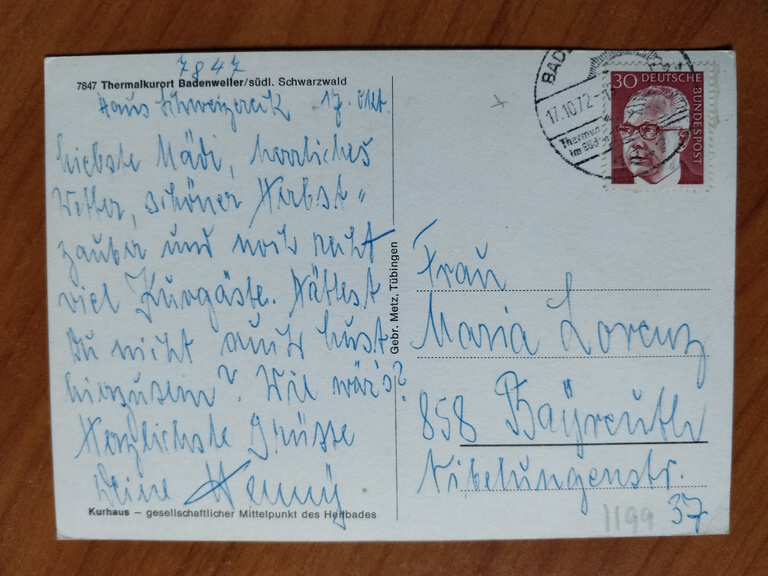 7847
7847 Thermalkurort Badenweiler/südl. Schwarzwald
Haus Schweizereck 17. Okt.
Liebste Mädi, herrliches
Wetter, schöner Herbst„
zauber und noch recht
viel Kurgäste. Hättest
Du nicht auch Lust
hierzusein? Wie wär's?
Herzlichste Grüsse
Deine Henny
Kurhaus – gesellschaftlicher Mittelpunkt des Heilbades
Gebr. Metz, Tübingen
17.10.72
Im Süd
30 DEUTSCHE BUNDESPOST
Frau
Maria Lorenz
858 Bayreuth
Nibelungenstr.
37
1199